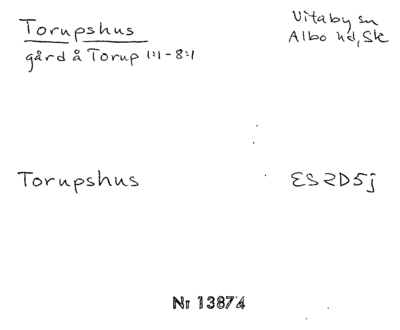 Torupshus
Vitaby sn
Albo hd, Sk
gård å Torup 1:1-8:1
Torupshus
ES2D5j
Nr 13874